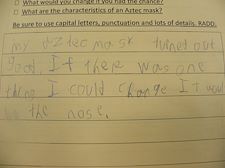 □ What would you change if you had the chance?
□ What are the characteristics of an Aztec mask?
Be sure to use capital letters, punctuation and lots of details. RADD.
my aztec mask turned out
good. If there was one
thing I could change I woul
the nose.